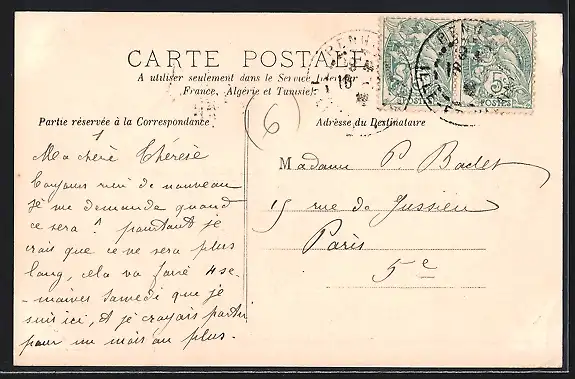 CARTE POSTALE
A utiliser seulement dans le Service Intérieur
France, Algérie et Tunisie.
Partie réservée à la Correspondance
Adresse du Destinataire
6
5c
POSTES
1
Ma chère Thérèse
Toujours rien de nouveau
je me demande quand
ce sera ? pourtant je
crois que ce ne sera plus
long, cela va faire 4 se-
-maines Samedi que je
suis ici, et je croyais partir
pour un mois au plus.
Madame P. Baclet
15 rue de Jussieu
Paris
5e